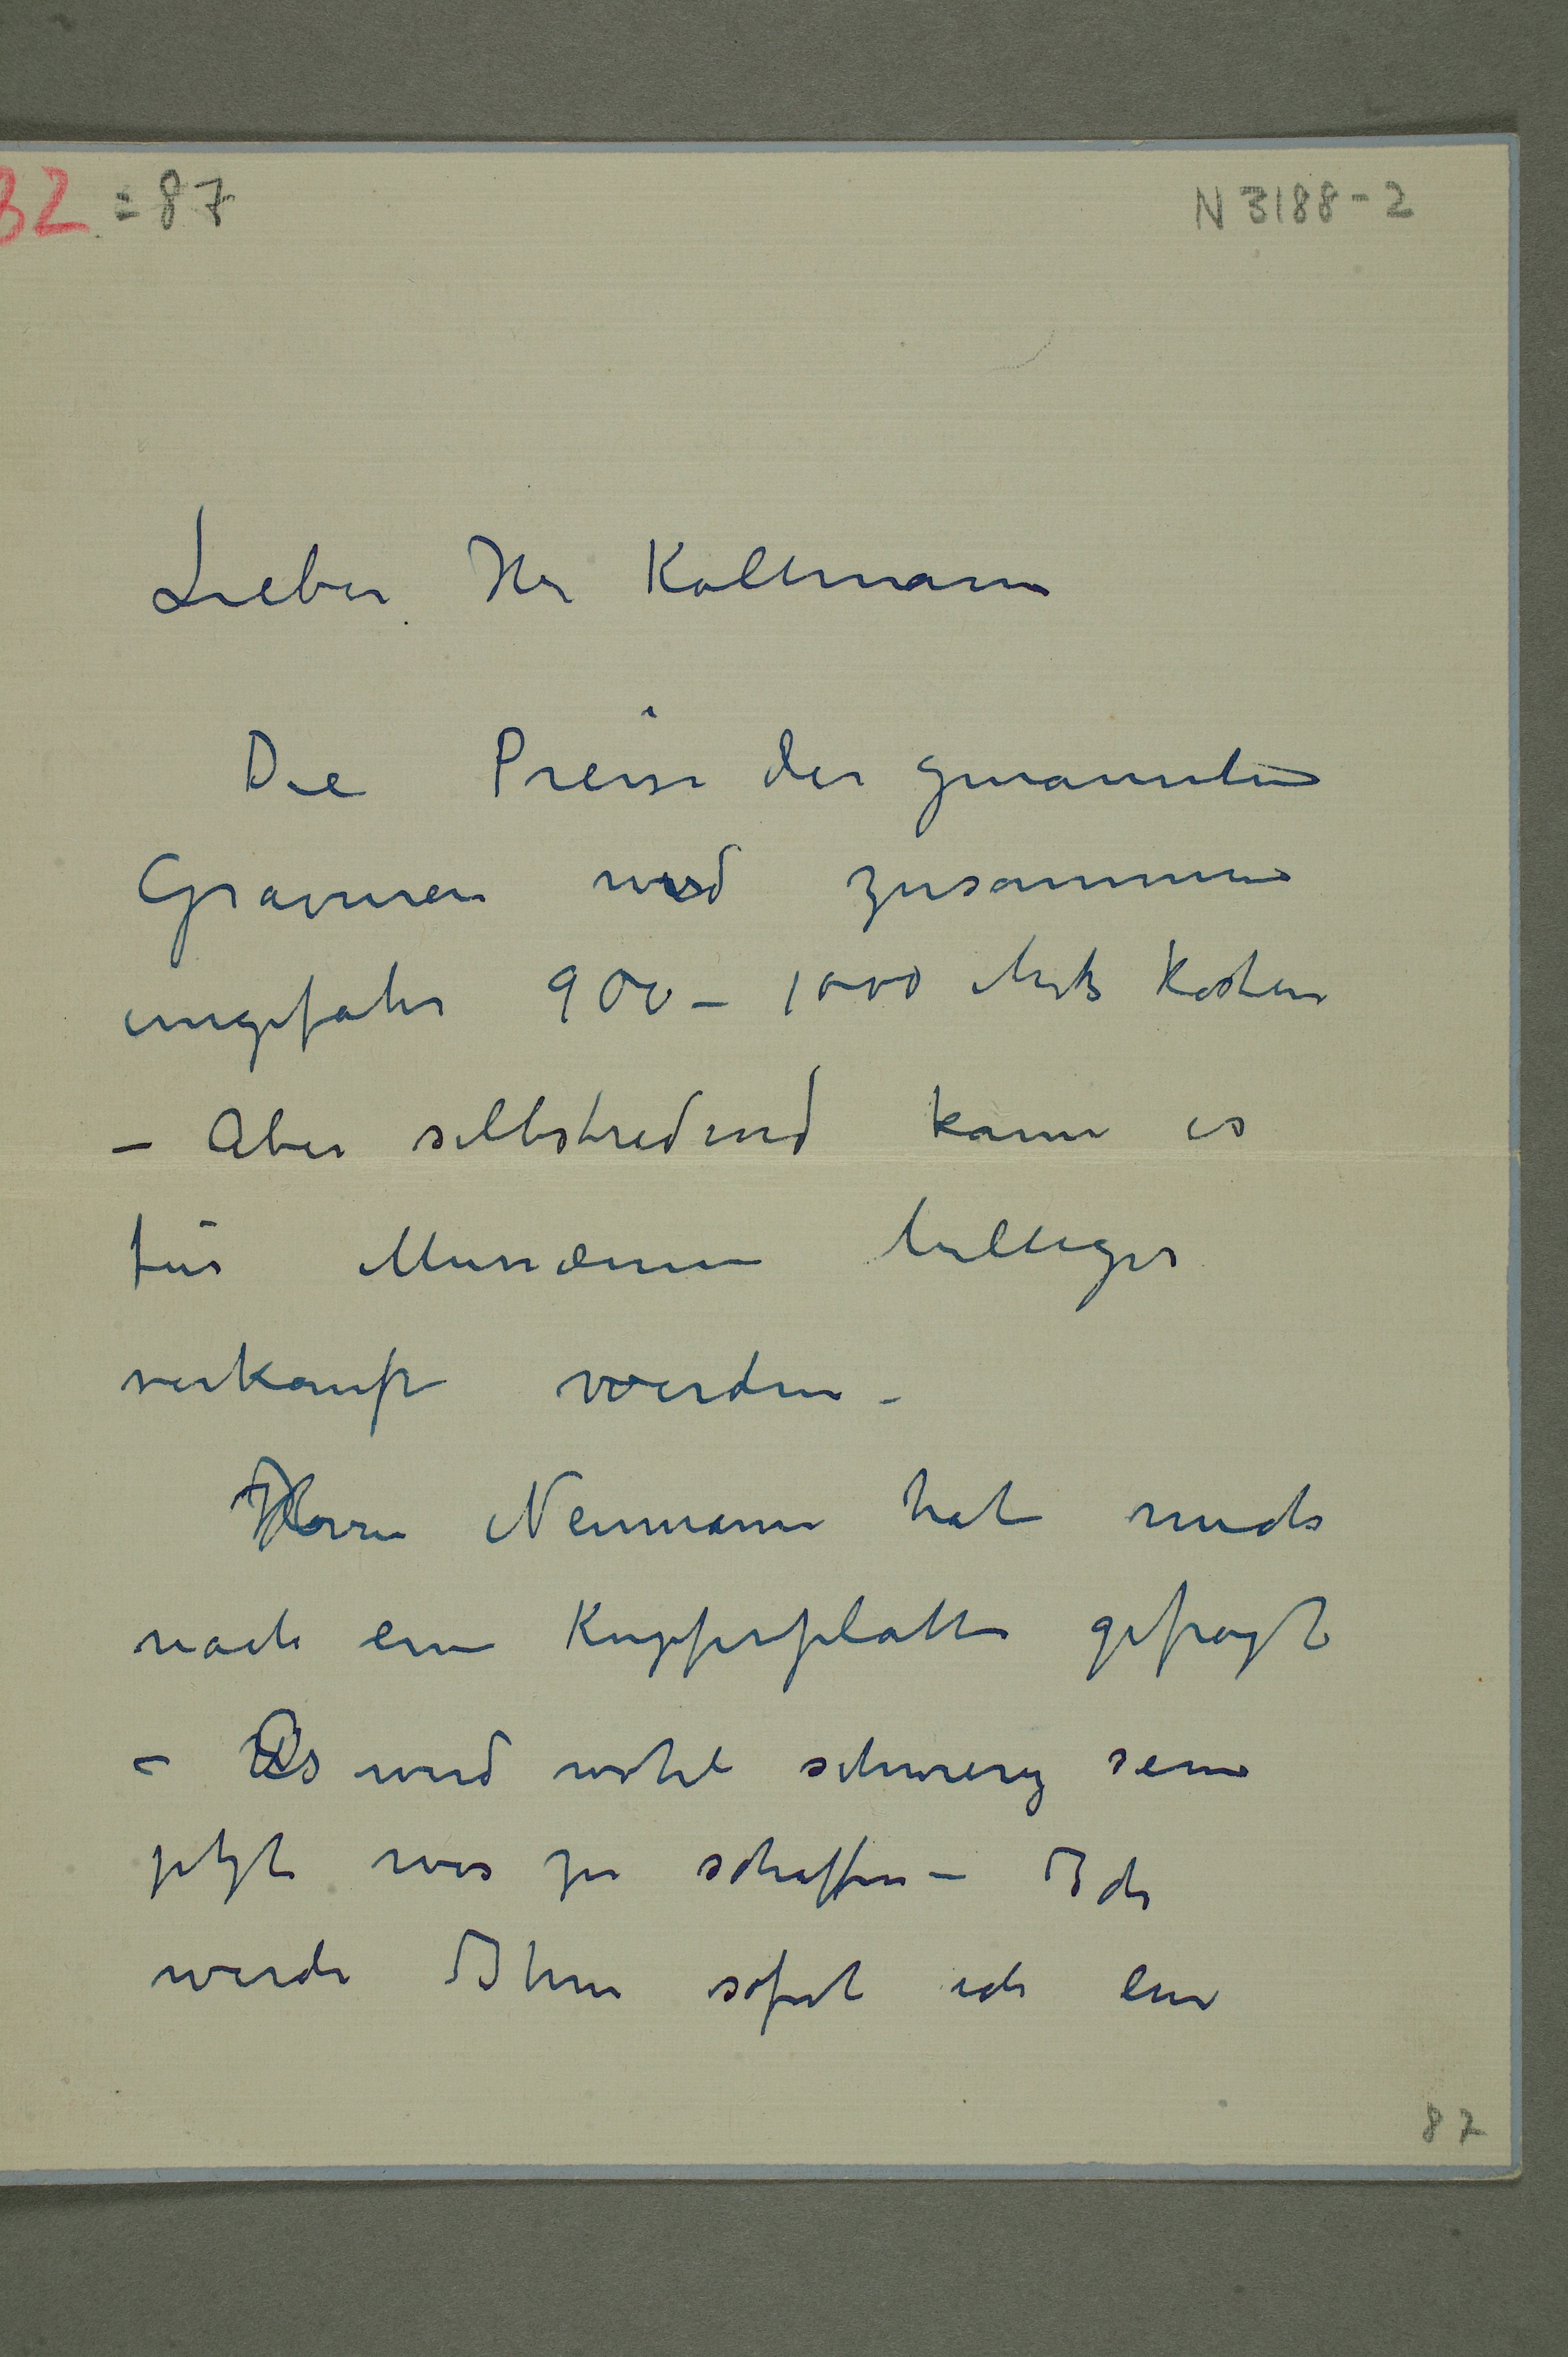 32 = 87
N 3188-2
Lieber Hr Kollmann
Die Preise der genannten
Gravuren wird zusammen
ungefähr 900 – 1000 Mark kosten
– Aber selbstredend kann es
für Musæum billiger
verkauft werden –
Herrn Neumann hat mich
nach eine Kupferplatte gefragt
– Es wird wohl schwierig sein
jetzt was zu schaffen – Ich
werde Ihnen sofort ich eine
87